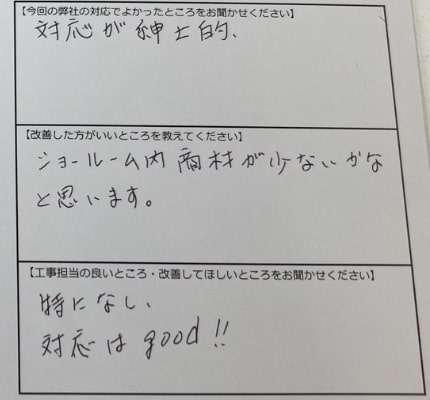 【今回の弊社の対応でよかったところをお聞かせください】
対応が紳士的、
【改善した方がいいところを教えてください】
ショールーム内商材が少ないかな
と思います。
【工事担当の良いところ・改善してほしいところをお聞かせください】
特になし、
対応はgood!!